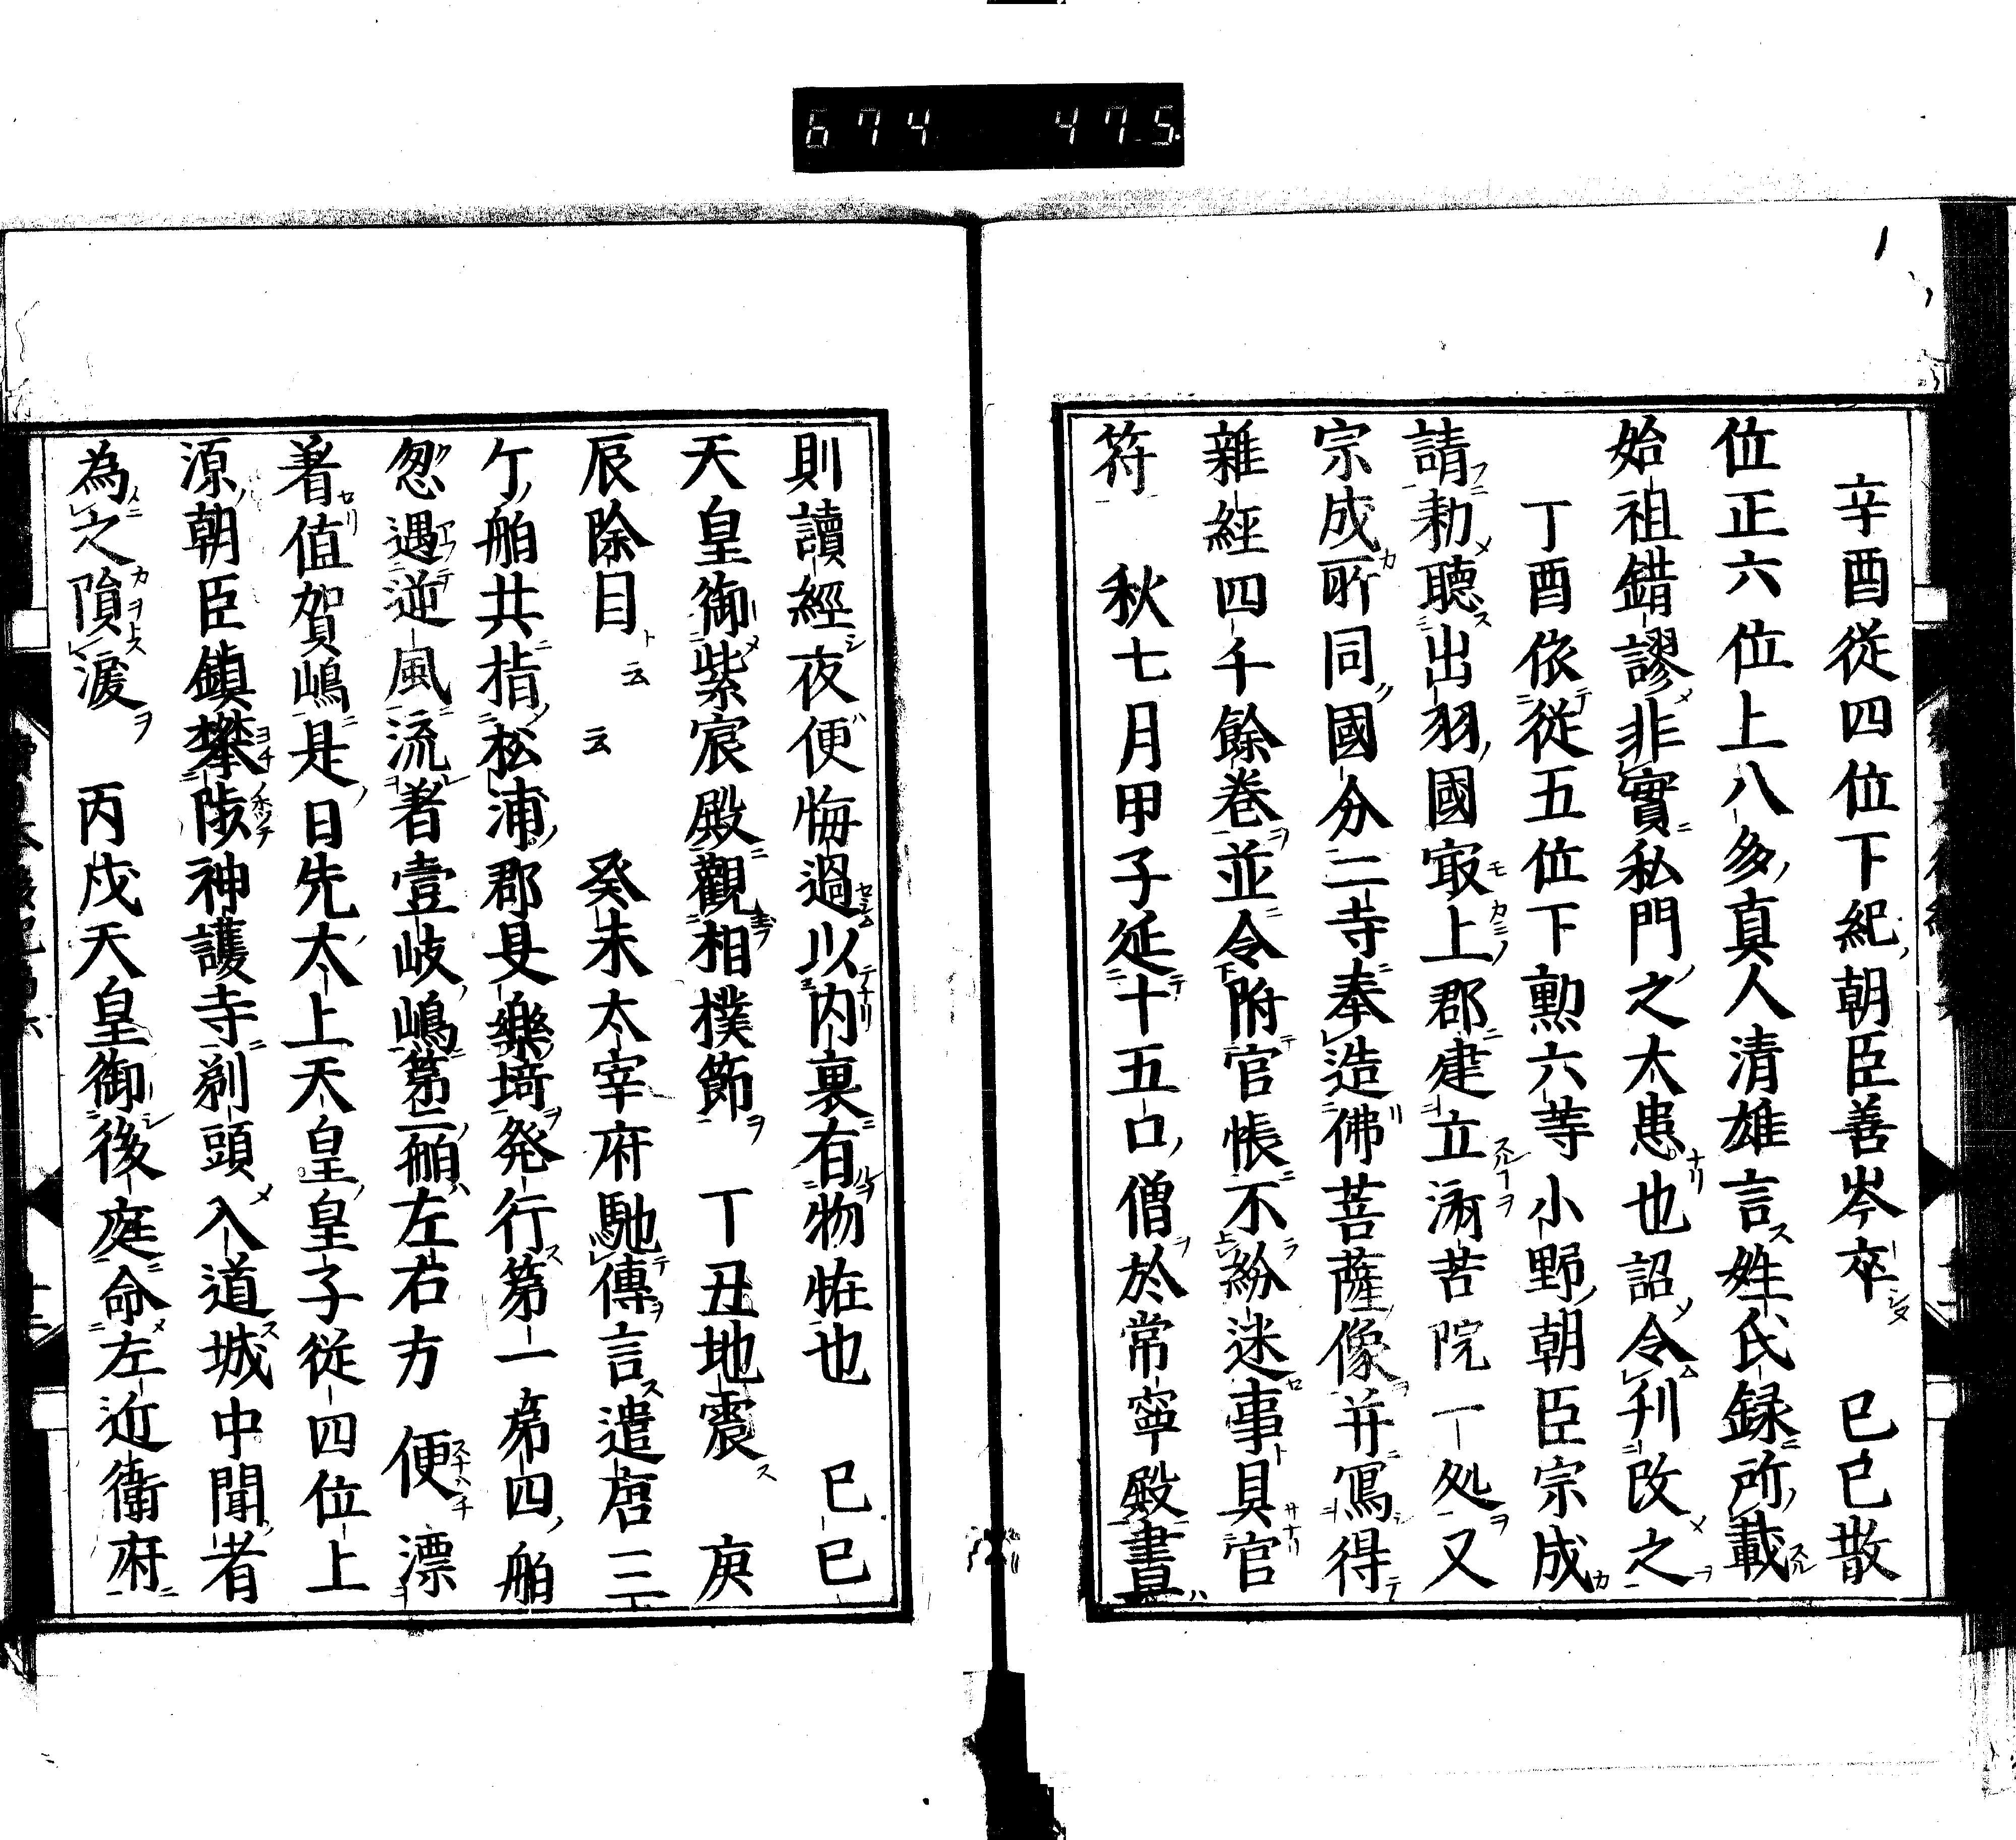 674 475
辛酉從四位下紀朝臣善岑卒 己巳散
位正六位上八多真人清雄言姓氏録所載
始祖錯謬非實私門之大患也詔令刋改之
丁酉依從五位下勲六等小野朝臣宗成
請勅聴出羽國㝡上郡建立済苦院一処又
宗成所同國分二寺奉造佛菩薩像并寫得
雜經四千餘巻並令附官帳不紛迷事具官
符 秋七月甲子延十五口僧於常寧殿晝
則讀經夜便悔過以内裏有物恠也 己巳
天皇御紫宸殿觀相撲節 丁丑地震 庚
辰除目云云 癸未太宰府馳傳言遣唐三
ケ舶共指松浦郡旻樂埼発行第一第四舶
忽遇逆風流著壹岐嶋第二舶左右方便漂
著値賀嶋是日先太上天皇皇子從四位上
源朝臣鎮攀陟神護寺剃頭入道城中聞者
為之隕涙 丙戌天皇御後庭命左近衛府